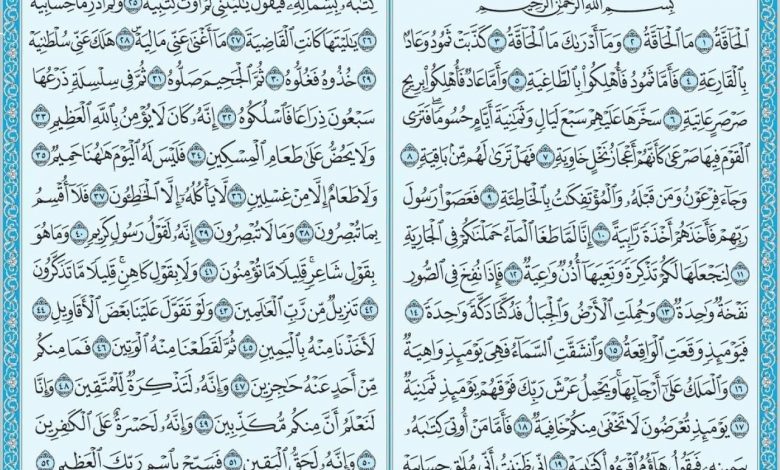 بِسْمِ اللَّهِ الرَّحْمَٰنِ الرَّحِيمِ
الْحَاقَّةُ ١ مَا الْحَاقَّةُ ٢ وَمَا أَدْرَاكَ مَا الْحَاقَّةُ ٣ كَذَّبَتْ ثَمُودُ وَعَادٌ
بِالْقَارِعَةِ ٤ فَأَمَّا ثَمُودُ فَأُهْلِكُوا بِالطَّاغِيَةِ ٥ وَأَمَّا عَادٌ فَأُهْلِكُوا بِرِيحٍ
صَرْصَرٍ عَاتِيَةٍ ٦ سَخَّرَهَا عَلَيْهِمْ سَبْعَ لَيَالٍ وَثَمَانِيَةَ أَيَّامٍ حُسُومًا فَتَرَى
الْقَوْمَ فِيهَا صَرْعَىٰ كَأَنَّهُمْ أَعْجَازُ نَخْلٍ خَاوِيَةٍ ٧ فَهَلْ تَرَىٰ لَهُم مِّن بَاقِيَةٍ ٨
وَجَاءَ فِرْعَوْنُ وَمَن قَبْلَهُ وَالْمُؤْتَفِكَاتُ بِالْخَاطِئَةِ ٩ فَعَصَوْا رَسُولَ
رَبِّهِمْ فَأَخَذَهُمْ أَخْذَةً رَّابِيَةً ١٠ إِنَّا لَمَّا طَغَا الْمَاءُ حَمَلْنَاكُمْ فِي الْجَارِيَةِ
١١ لِنَجْعَلَهَا لَكُمْ تَذْكِرَةً وَتَعِيَهَا أُذُنٌ وَاعِيَةٌ ١٢ فَإِذَا نُفِخَ فِي الصُّورِ
نَفْخَةٌ وَاحِدَةٌ ١٣ وَحُمِلَتِ الْأَرْضُ وَالْجِبَالُ فَدُكَّتَا دَكَّةً وَاحِدَةً ١٤
فَيَوْمَئِذٍ وَقَعَتِ الْوَاقِعَةُ ١٥ وَانشَقَّتِ السَّمَاءُ فَهِيَ يَوْمَئِذٍ وَاهِيَةٌ
١٦ وَالْمَلَكُ عَلَىٰ أَرْجَائِهَا وَيَحْمِلُ عَرْشَ رَبِّكَ فَوْقَهُمْ يَوْمَئِذٍ ثَمَانِيَةٌ
١٧ يَوْمَئِذٍ تُعْرَضُونَ لَا تَخْفَىٰ مِنكُمْ خَافِيَةٌ ١٨ فَأَمَّا مَنْ أُوتِيَ كِتَابَهُ
بِيَمِينِهِ فَيَقُولُ هَاؤُمُ اقْرَءُوا كِتَابِيَهْ ١٩ إِنِّي ظَنَنتُ أَنِّي مُلَاقٍ حِسَابِيَهْ
كِتَابَهُ بِشِمَالِهِ فَيَقُولُ يَا لَيْتَنِي لَمْ أُوتَ كِتَابِيَهْ ٢٥ وَلَمْ أَدْرِ مَا حِسَابِيَهْ
٢٦ يَا لَيْتَهَا كَانَتِ الْقَاضِيَةَ ٢٧ مَا أَغْنَىٰ عَنِّي مَالِيَهْ ٢٨ هَلَكَ عَنِّي سُلْطَانِيَهْ
٢٩ خُذُوهُ فَغُلُّوهُ ٣٠ ثُمَّ الْجَحِيمَ صَلُّوهُ ٣١ ثُمَّ فِي سِلْسِلَةٍ ذَرْعُهَا
سَبْعُونَ ذِرَاعًا فَاسْلُكُوهُ ٣٢ إِنَّهُ كَانَ لَا يُؤْمِنُ بِاللَّهِ الْعَظِيمِ ٣٣
وَلَا يَحُضُّ عَلَىٰ طَعَامِ الْمِسْكِينِ ٣٤ فَلَيْسَ لَهُ الْيَوْمَ هَاهُنَا حَمِيمٌ ٣٥
وَلَا طَعَامٌ إِلَّا مِنْ غِسْلِينٍ ٣٦ لَّا يَأْكُلُهُ إِلَّا الْخَاطِئُونَ ٣٧ فَلَا أُقْسِمُ
بِمَا تُبْصِرُونَ ٣٨ وَمَا لَا تُبْصِرُونَ ٣٩ إِنَّهُ لَقَوْلُ رَسُولٍ كَرِيمٍ ٤٠ وَمَا هُوَ
بِقَوْلِ شَاعِرٍ قَلِيلًا مَّا تُؤْمِنُونَ ٤١ وَلَا بِقَوْلِ كَاهِنٍ قَلِيلًا مَّا تَذَكَّرُونَ
٤٢ تَنزِيلٌ مِّن رَّبِّ الْعَالَمِينَ ٤٣ وَلَوْ تَقَوَّلَ عَلَيْنَا بَعْضَ الْأَقَاوِيلِ ٤٤
لَأَخَذْنَا مِنْهُ بِالْيَمِينِ ٤٥ ثُمَّ لَقَطَعْنَا مِنْهُ الْوَتِينَ ٤٦ فَمَا مِنكُم
مِّنْ أَحَدٍ عَنْهُ حَاجِزِينَ ٤٧ وَإِنَّهُ لَتَذْكِرَةٌ لِّلْمُتَّقِينَ ٤٨ وَإِنَّا
لَنَعْلَمُ أَنَّ مِنكُم مُّكَذِّبِينَ ٤٩ وَإِنَّهُ لَحَسْرَةٌ عَلَى الْكَافِرِينَ
٥٠ وَإِنَّهُ لَحَقُّ الْيَقِينِ ٥١ فَسَبِّحْ بِاسْمِ رَبِّكَ الْعَظِيمِ ٥٢